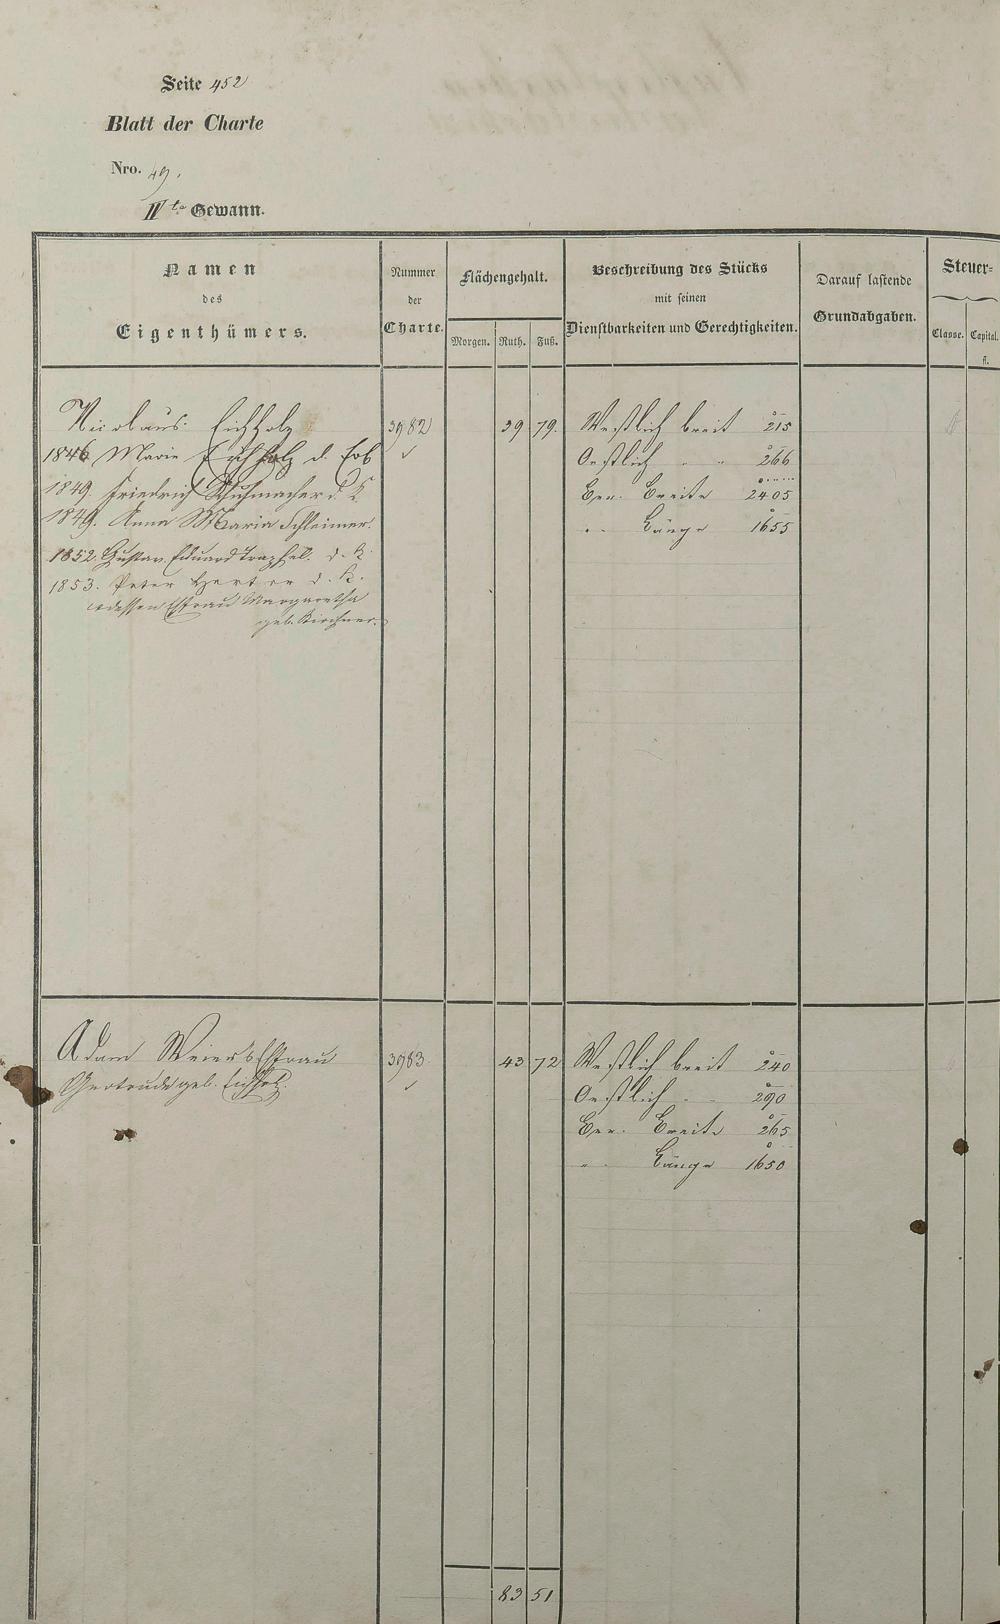 Seite 452
Blatt der Charte
Nro. 49.
II te Gewann.
Namen des Eigenthümers.
Nummer der Charte.
Flächengehalt.
Morgen. Ruth. Fuß.
Beschreibung des Stücks mit seinen Dienstbarkeiten und Gerechtigkeiten.
Darauf lastende Grundabgaben.
Steuer-
Classe. Capital. fl.
Nicolaus Eichholz 3982 39 79. Westlich breit 215
1846 Marie Eichholz d. Erb Oestlich " " 266
1849 Friedrich Schuhmacher d. K. Ger. Breite 2405
1849. Anna Maria Schleimer. " Länge 1655
1852. Gustav Eduard Trapfel. d. K.
1853. Peter Herter d. K.
dessen Ehefrau Margaretha
geb. Kirchner.
Adam Weiers Ehefrau 3983 43 72 Westlich breit 240
Gertrude geb. Eichholz. Oestlich " " 290
Ger. Breite 265
" Länge 1650
83 51